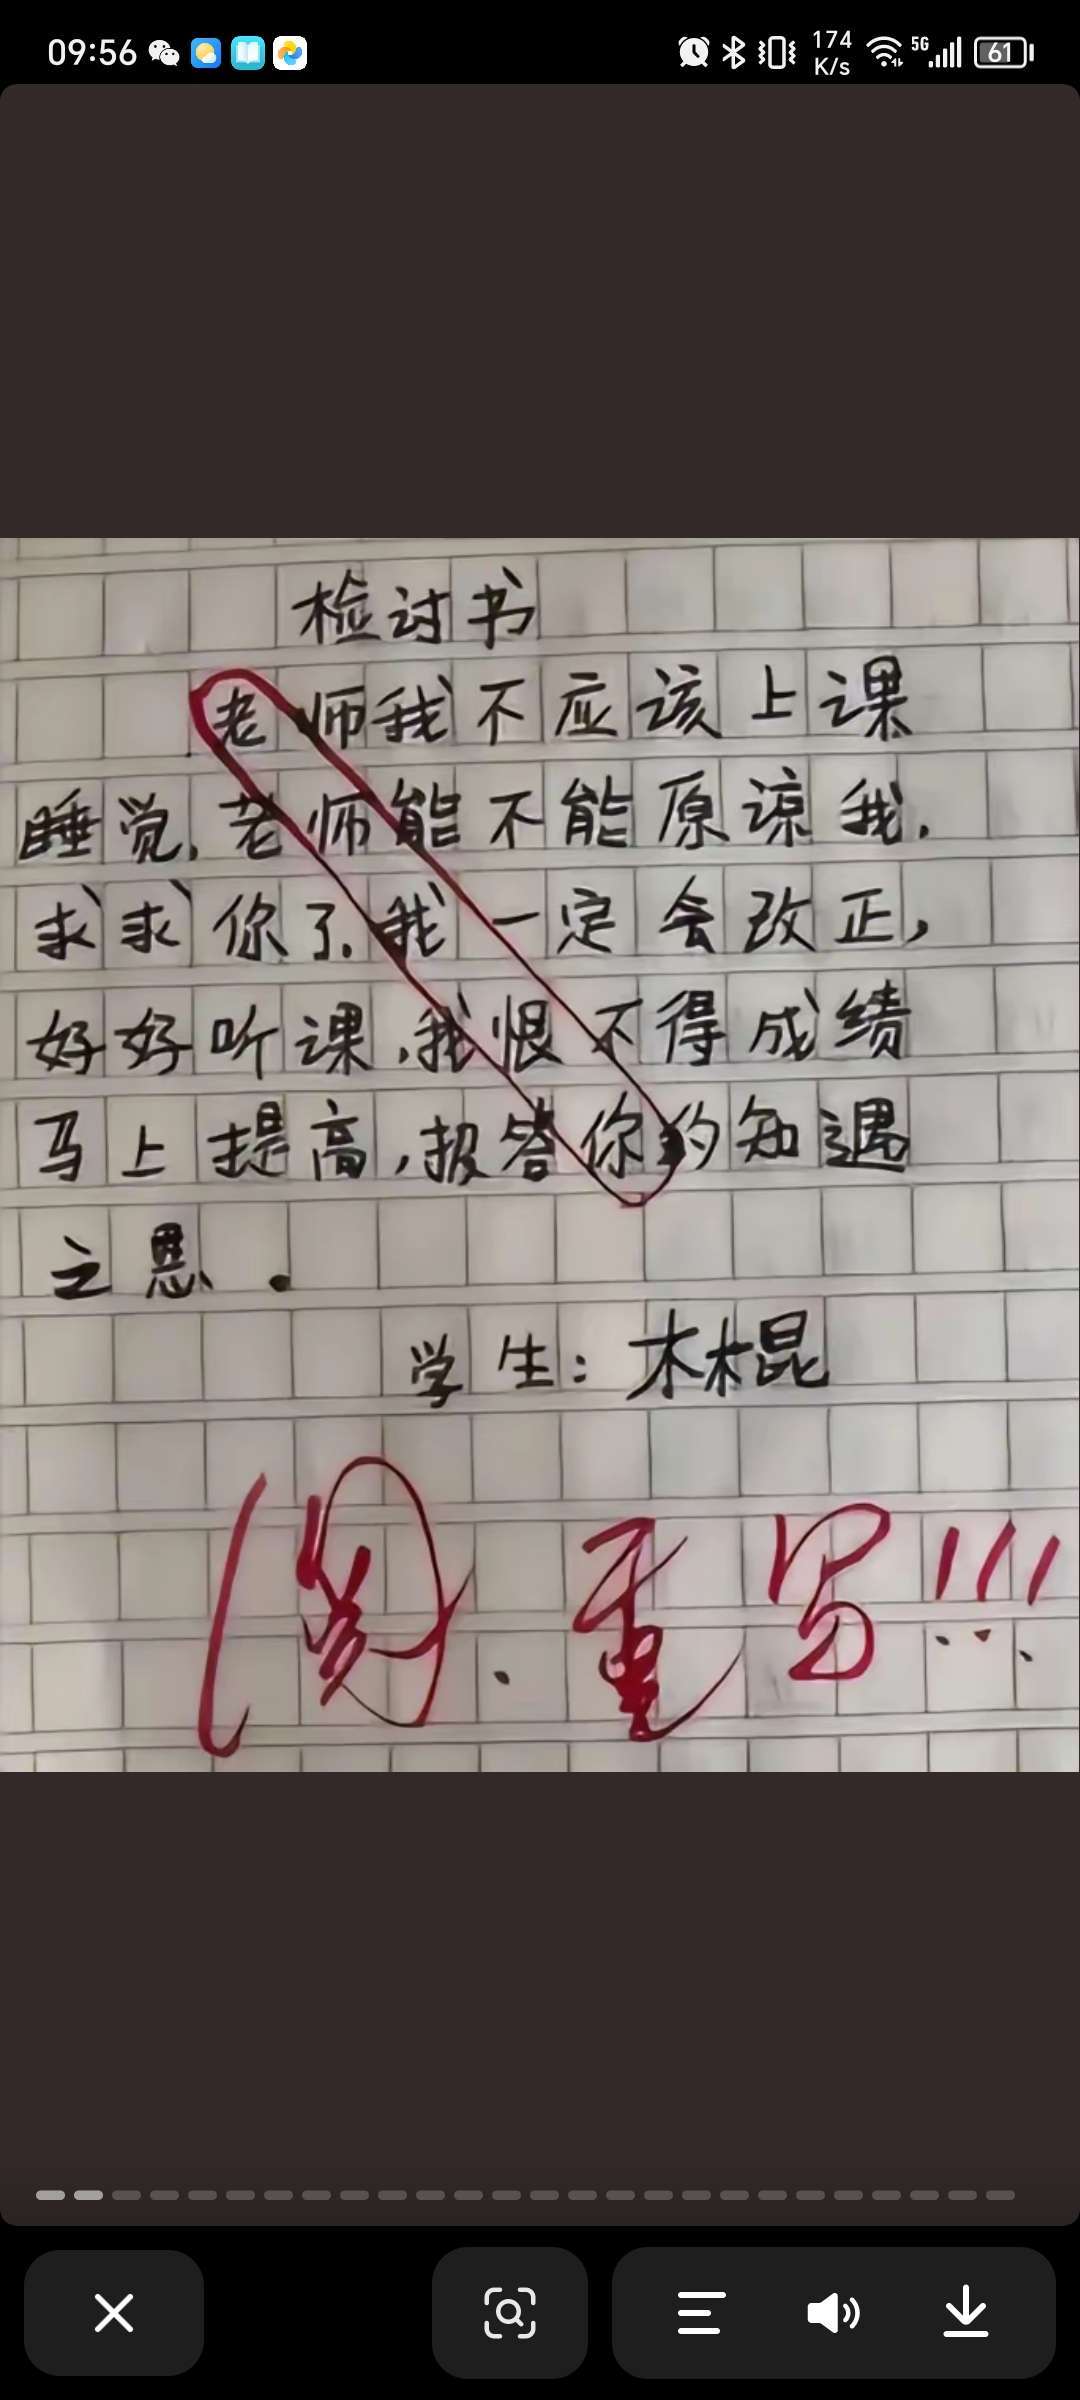 09:56
174 K/s
5G
61
检讨书
老师我不应该上课
睡觉,老师能不能原谅我.
求求你了.我一定会改正,
好好听课,我恨不得成绩
马上提高,报答你的知遇
之恩.
学生:木棍
(阅).重写!!!